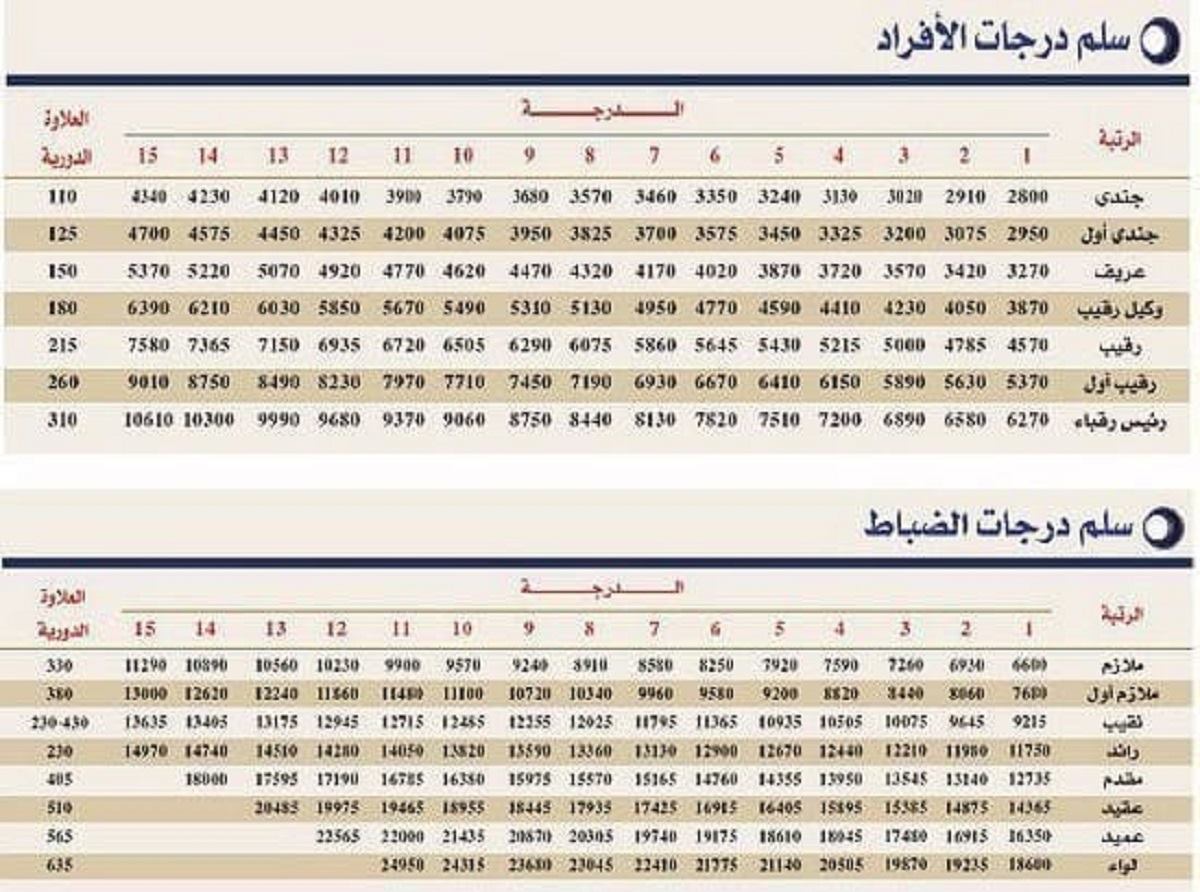 سلم درجات الأفراد
الرتبة الـــدرجـــة العلاوة الدورية
1 2 3 4 5 6 7 8 9 10 11 12 13 14 15
جندي 2800 2910 3020 3130 3240 3350 3460 3570 3680 3790 3900 4010 4120 4230 4340 110
جندي أول 2950 3075 3200 3325 3450 3575 3700 3825 3950 4075 4200 4325 4450 4575 4700 125
عريف 3270 3420 3570 3720 3870 4020 4170 4320 4470 4620 4770 4920 5070 5220 5370 150
وكيل رقيب 3870 4050 4230 4410 4590 4770 4950 5130 5310 5490 5670 5850 6030 6210 6390 180
رقيب 4570 4785 5000 5215 5430 5645 5860 6075 6290 6505 6720 6935 7150 7365 7580 215
رقيب أول 5370 5630 5890 6150 6410 6670 6930 7190 7450 7710 7970 8230 8490 8750 9010 260
رئيس رقباء 6270 6580 6890 7200 7510 7820 8130 8440 8750 9060 9370 9680 9990 10300 10610 310
سلم درجات الضباط
الرتبة الـــدرجـــة العلاوة الدورية
1 2 3 4 5 6 7 8 9 10 11 12 13 14 15
ملازم 6600 6930 7260 7590 7920 8250 8580 8910 9240 9570 9900 10230 10560 10890 11290 330
ملازم أول 7680 8060 8440 8820 9200 9580 9960 10340 10720 11100 11480 11860 12240 12620 13000 380
نقيب 9215 9645 10075 10505 10935 11365 11795 12025 12255 12485 12715 12945 13175 13405 13635 230-430
رائد 11750 11980 12210 12440 12670 12900 13130 13360 13590 13820 14050 14280 14510 14740 14970 230
مقدم 12735 13140 13545 13950 14355 14760 15165 15570 15975 16380 16785 17190 17595 18000 405
عقيد 14365 14875 15385 15895 16405 16915 17425 17935 18445 18955 19465 19975 20485 510
عميد 16350 16915 17480 18045 18610 19175 19740 20305 20870 21435 22000 22565 565
لواء 18600 19235 19870 20505 21140 21775 22410 23045 23680 24315 24950 635